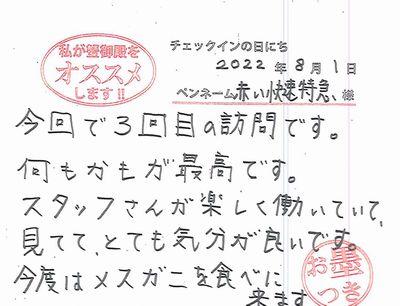 私が蟹御殿を
オススメ
します!!
チェックインの日にち
2022年8月1日
ペンネーム 赤い快速特急、様
今回で3回目の訪問です。
何もかもが最高です。
スタッフさんが楽しく働いていて、
見てて、とても気分が良いです。
今度はメスガニを食べに
来ます
墨
おつき